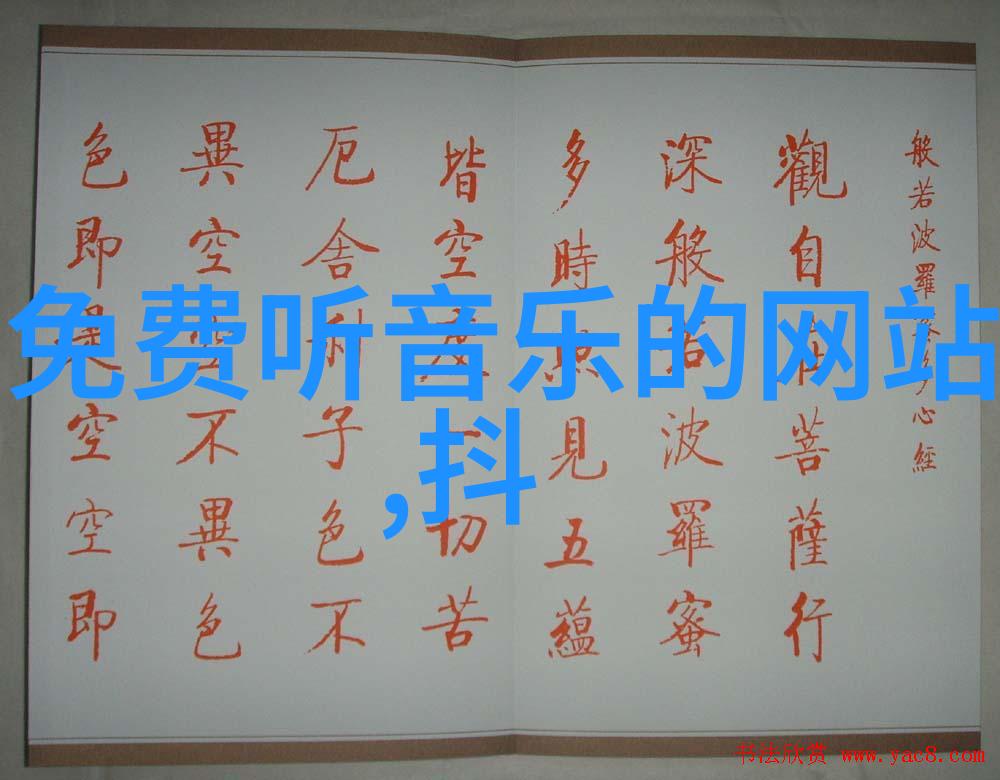 般若波羅多心經
觀自在菩薩行
深般若波羅蜜
多時照見五蘊
皆空度切苦
厄舍利子色不
異空空不異色
色即是空空即
免费听音乐的网站
,抖
书法欣赏 www.yac8.com